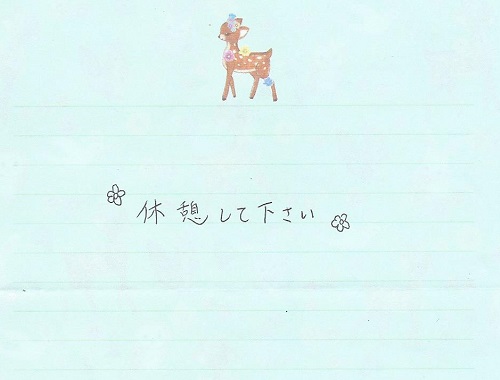 休憩して下さい